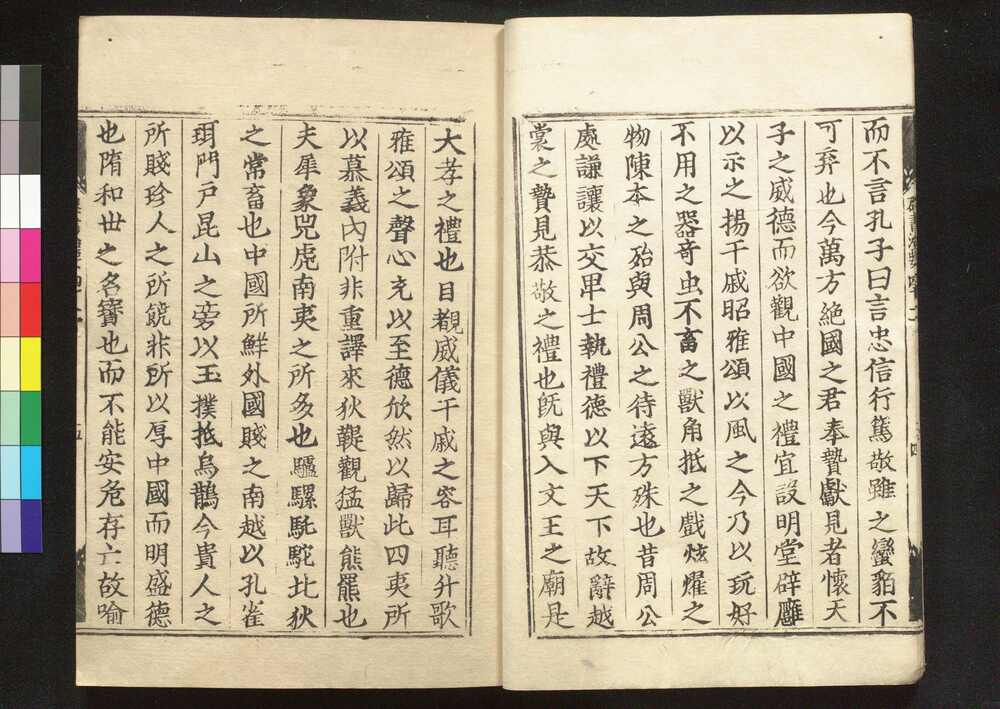 而不言孔子曰言忠信行篤敬雖之蠻貊不
可弃也今萬方絶國之君奉贄獻見者懷天
子之威德而欲觀中國之禮宜設明堂辟廱
以示之揚干戚昭雅頌以風之今乃以玩好
不用之器奇虫不畜之獸角抵之戲炫燿之
物陳本之殆與周公之待遠方殊也昔周公
處謙讓以交卑士執禮德以下天下故辭越
裳之贄見恭敬之禮也旣與入文王之廟是
大孝之禮也目覩威儀干戚之容耳聽升歌
雅頌之聲心充以至德欣然以歸此四夷所
以慕義內附非重譯來狄鞮觀猛獸熊羆也
夫犀象兕虎南夷之所多也驢騾馲駝比狄
之常畜也中國所鮮外國賤之南越以孔雀
珥門戶昆山之旁以玉撲抵烏鵲今貴人之
所賤珍人之所饒非所以厚中國而明盛德
也隋和世之名寶也而不能安危存亡故喻